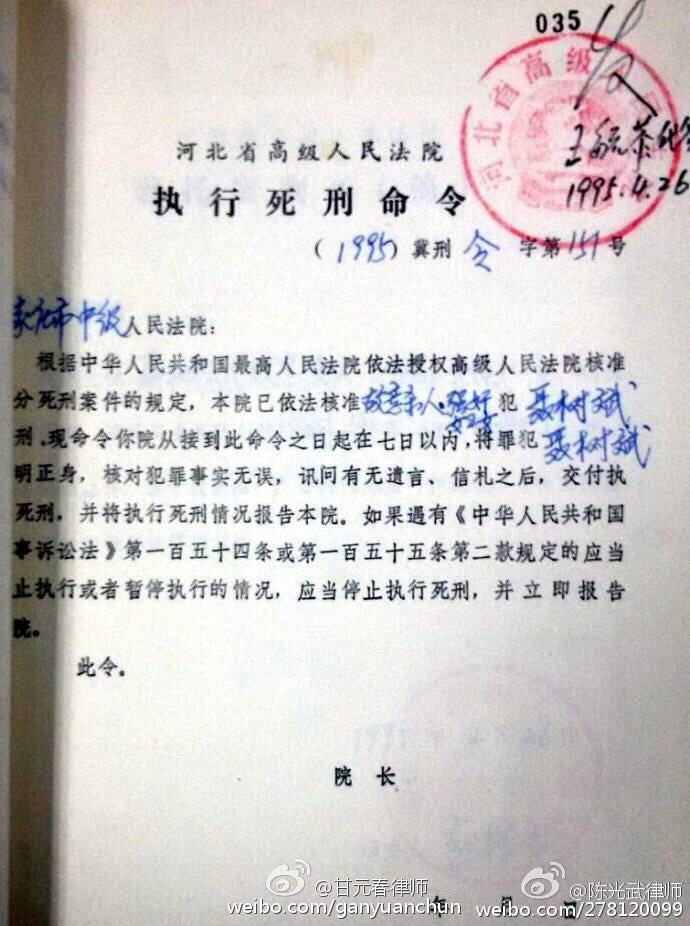 035
河北省高级
王 1995.4.26
河北省高级人民法院
执行死刑命令
（1995）冀刑 令 字第151号
家庄市中级人民法院：
根据中华人民共和国最高人民法院依法授权高级人民法院核准
分死刑案件的规定，本院已依法核准故意杀人、强奸妇女犯 聂树斌
刑。现命令你院从接到此命令之日起在七日以内，将罪犯 聂树斌
明正身，核对犯罪事实无误，讯问有无遗言、信札之后，交付执
死刑，并将执行死刑情况报告本院。如果遇有《中华人民共和国
事诉讼法》第一百五十四条或第一百五十五条第二款规定的应当
止执行或者暂停执行的情况，应当停止执行死刑，并立即报告
院。
此令。
院 长
年 月 日
@甘元春律师
weibo.com/ganyuanchun
@陈光武律师
weibo.com/278120099